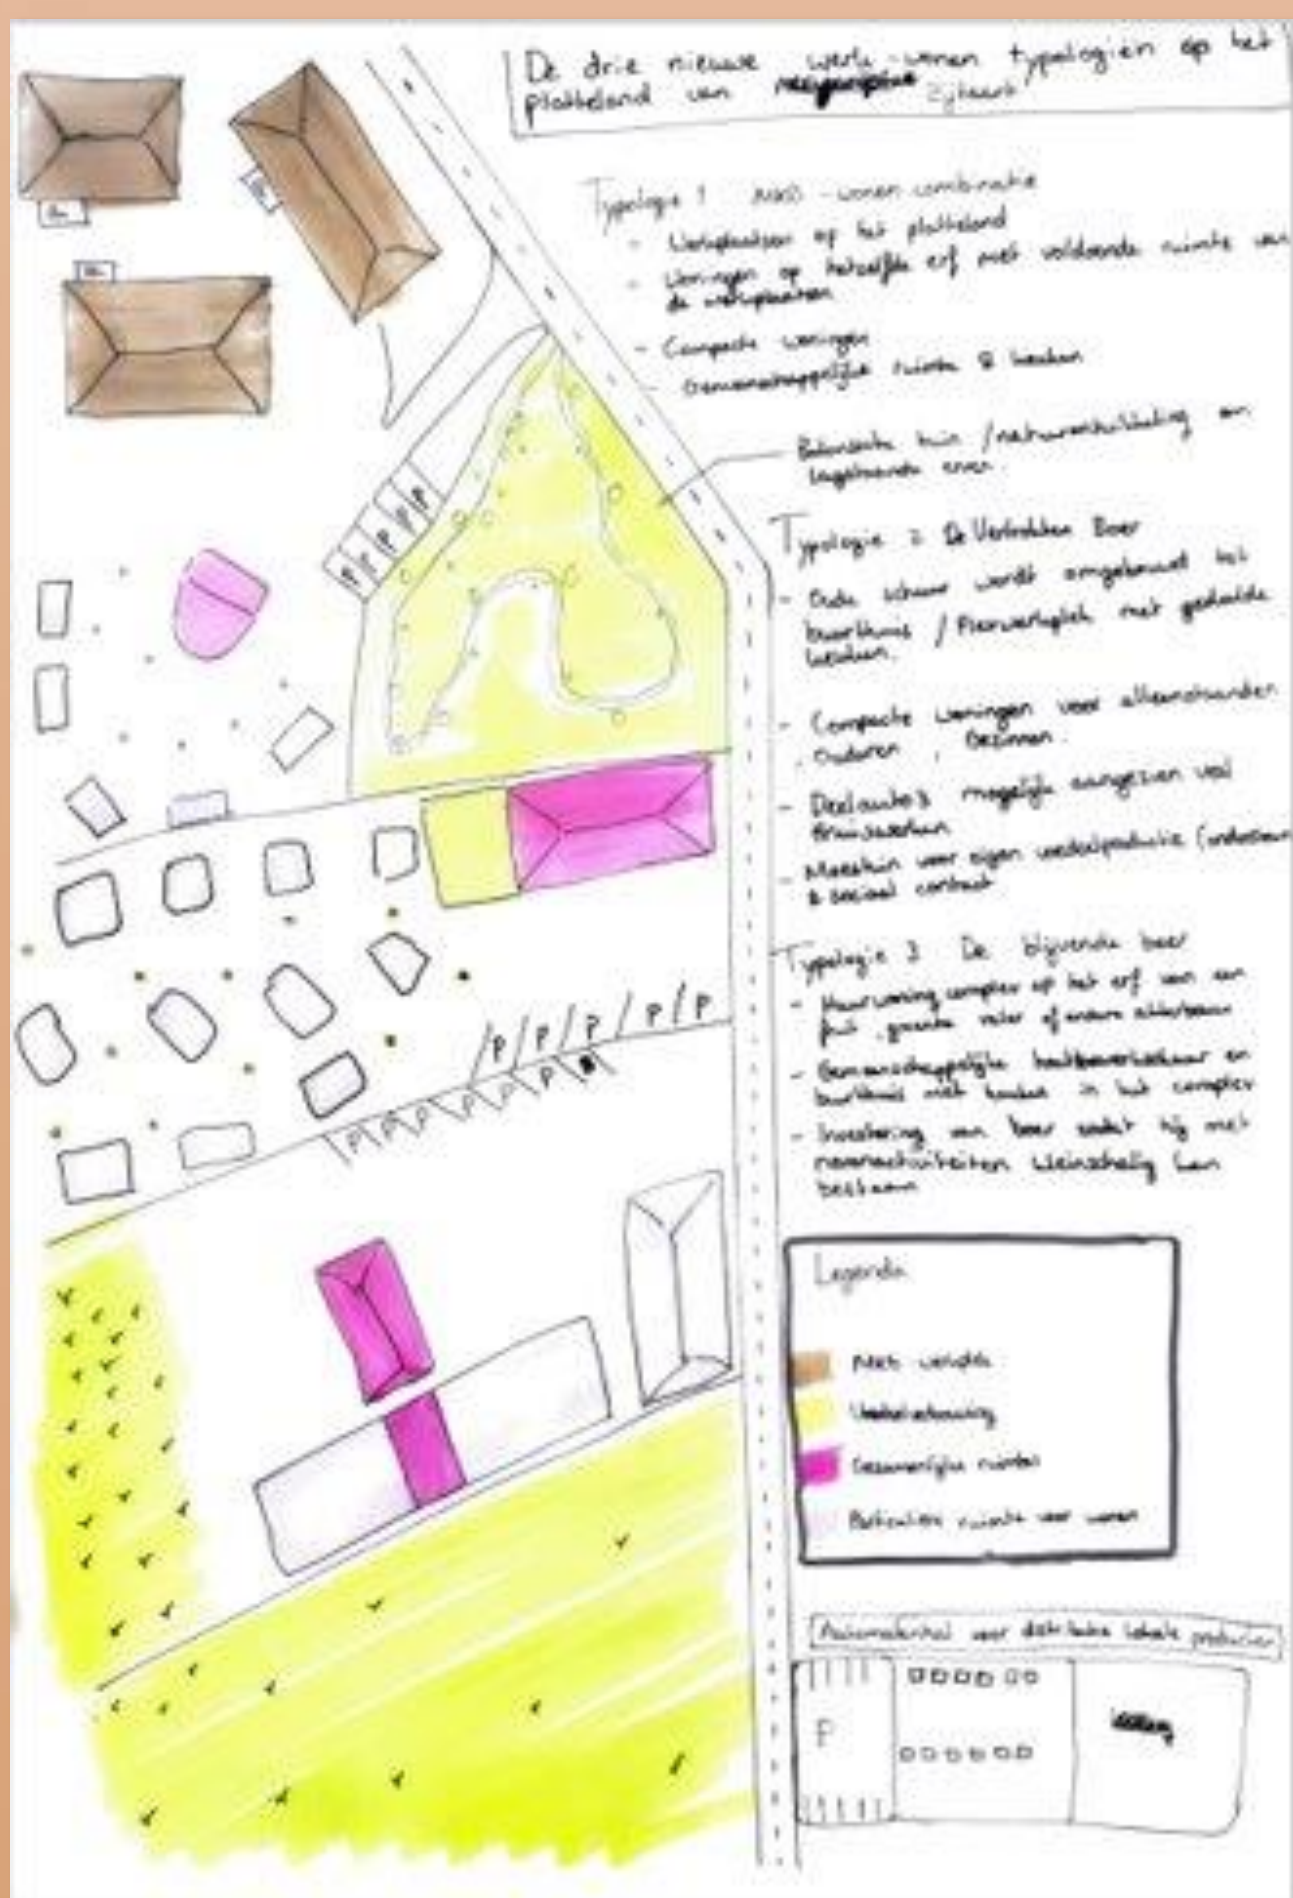 De drie nieuwe werk-wonen typologien op het
platteland van Zijtaart
Typologie 1 -wonen-combinatie
- Werkplaatsen op het platteland
- Woningen op hetzelfde erf met voldoende ruimte van
de werkplaatsen
- Compacte woningen
- Gemeenschappelijke ruimte & keuken
tuin / natuurontwikkeling en
erven.
Typologie 2 De Vertrokken Boer
- Oude schuur wordt omgebouwd tot
buurthuis / Flexwerkplek met gedeelde
keuken.
- Compacte woningen voor alleenstaanden
, ouderen , Gezinnen.
- Deelauto's mogelijk aangezien veel
thuiswerken
- Moestuin voor eigen voedselproductie
& sociaal contact
Typologie 3 De blijvende boer
- Huurwoning complex op het erf van een
fruit, groente teler of andere akkerbouw
- Gemeenschappelijke en
buurthuis met keuken in het complex
- Investering van boer zodat hij met
nevenactiviteiten kleinschalig kan
bestaan
P P P P P
P P P P P
P P P P P
Legenda
werkplek
Voedselverbouwing
Gezamenlijke ruimtes
Particuliere ruimte voor wonen
voor distributie lokale producten
P